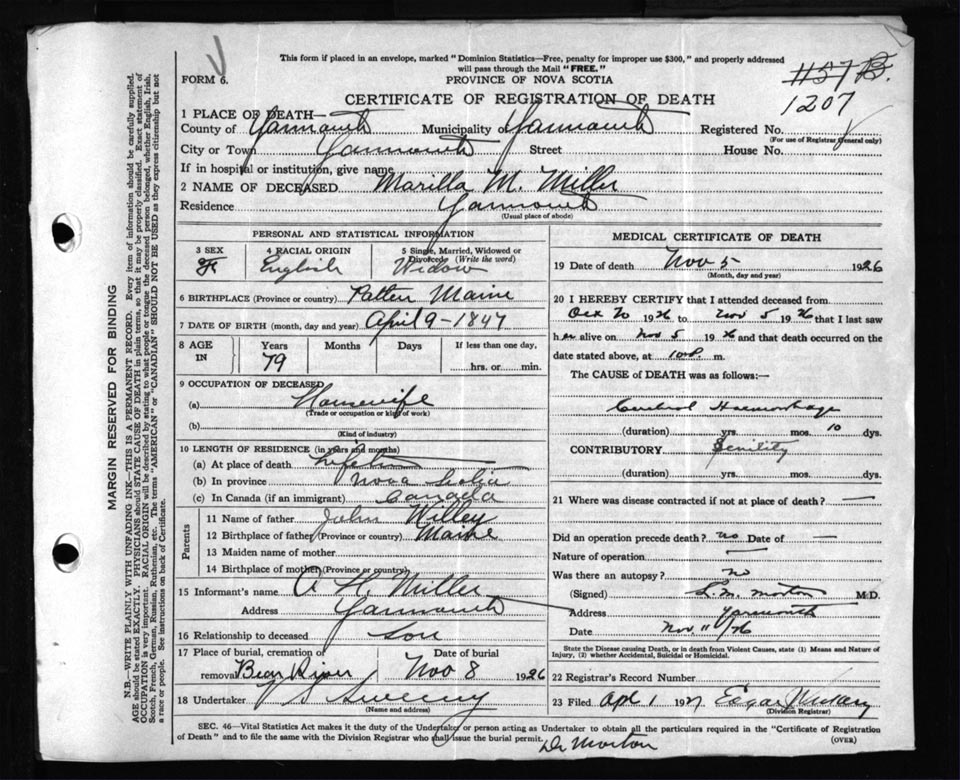 This form if placed in an envelope, marked "Dominion Statistics—Free, penalty for improper use $300," and properly addressed
will pass through the Mail "FREE."
FORM 6.
PROVINCE OF NOVA SCOTIA
#57 B.
1207
CERTIFICATE OF REGISTRATION OF DEATH
1 PLACE OF DEATH—
County of Yarmouth Municipality of Yarmouth Registered No.
(For use of Registrar General only)
City or Town Yarmouth Street House No.
If in hospital or institution, give name
2 NAME OF DECEASED Marilla M. Miller
Residence Yarmouth
(Usual place of abode)
PERSONAL AND STATISTICAL INFORMATION
3 SEX 4 RACIAL ORIGIN 5 Single, Married, Widowed or Divorced (Write the word)
F English Widow
6 BIRTHPLACE (Province or country) Patten Maine
7 DATE OF BIRTH (month, day and year) April 9 - 1847
8 AGE IN Years Months Days If less than one day,
79 hrs. or min.
9 OCCUPATION OF DECEASED
(a) Housewife
(Trade or occupation or kind of work)
(b)
(Kind of industry)
10 LENGTH OF RESIDENCE (in years and months)
(a) At place of death
(b) In province Nova Scotia
(c) In Canada (if an immigrant) Canada
Parents
11 Name of father John Willey
12 Birthplace of father (Province or country) Maine
13 Maiden name of mother
14 Birthplace of mother (Province or country)
15 Informant's name A H. Miller
Address Yarmouth
16 Relationship to deceased Son
17 Place of burial, cremation or removal Date of burial
Bear River Nov 8 1926
18 Undertaker Sweeny
(Name and address)
MEDICAL CERTIFICATE OF DEATH
19 Date of death Nov 5 1926
(Month, day and year)
20 I HEREBY CERTIFY that I attended deceased from
Oct 20 1926 to Nov 5 1926 that I last saw
her alive on Nov 5 1926 and that death occurred on the
date stated above, at 10 P. m.
The CAUSE of DEATH was as follows:—
Cerebral Haemorrhage
(duration) yrs. mos. 10 dys.
CONTRIBUTORY Senility
(duration) yrs. mos. dys.
21 Where was disease contracted if not at place of death? —
Did an operation precede death? no Date of —
Nature of operation —
Was there an autopsy? no
(Signed) L. M. Morton M.D.
Address Yarmouth
Date Nov 11/26
State the Disease causing Death, or in death from Violent Causes, state (1) Means and Nature of
Injury, (2) whether Accidental, Suicidal or Homicidal.
22 Registrar's Record Number
23 Filed Apl 1 1927 Edgar
(Division Registrar)
SEC. 46—Vital Statistics Act makes it the duty of the Undertaker or person acting as Undertaker to obtain all the particulars required in the "Certificate of Registration
of Death" and to file the same with the Division Registrar who shall issue the burial permit.
(OVER)
Dr Morton
MARGIN RESERVED FOR BINDING
N.B.—WRITE PLAINLY WITH UNFADING INK—THIS IS A PERMANENT RECORD. Every item of information should be carefully supplied.
AGE should be stated EXACTLY. PHYSICIANS should STATE CAUSE OF DEATH in plain terms, so that it may be properly classified. Exact statement of
OCCUPATION is very important. RACIAL ORIGIN will be described by stating to what people or tongue the deceased person belonged, whether English, Irish,
Scotch, French, German, Russian, Ruthenian, etc. The terms "AMERICAN" or "CANADIAN" SHOULD NOT BE USED as they express citizenship but not
a race or people. See instructions on back of Certificate.